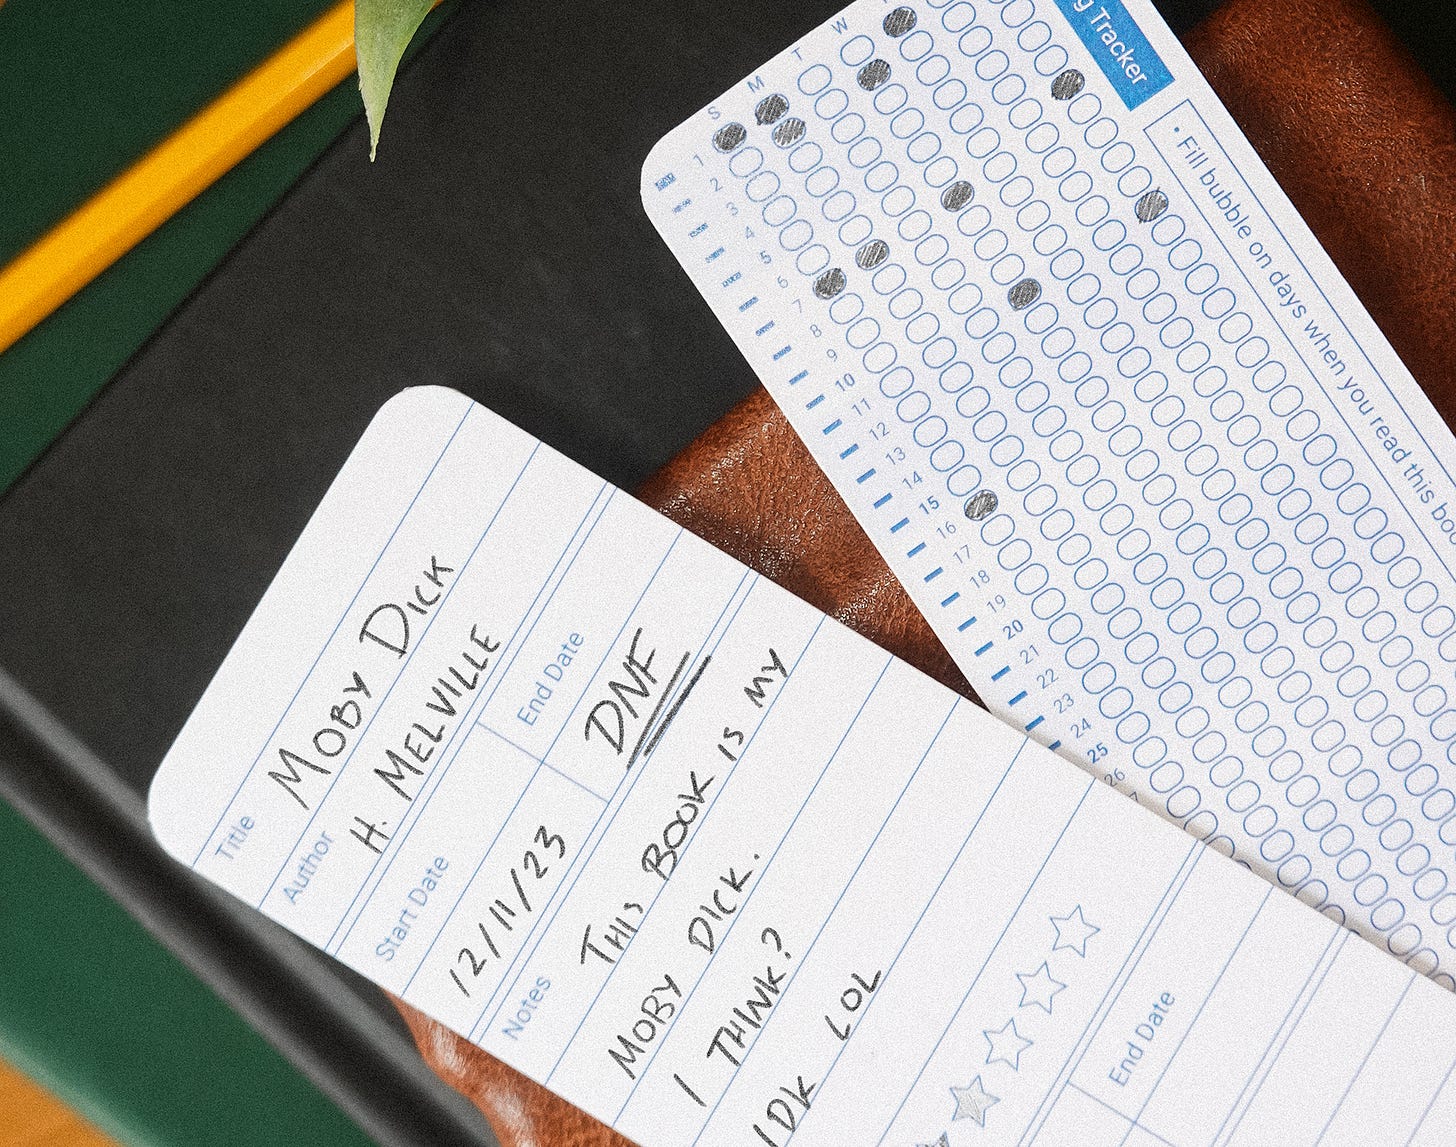 Title MOBY DICK
Author H. MELVILLE
Start Date End Date
12/11/23 DNF
Notes THIS BOOK IS MY
MOBY DICK.
I THINK?
IDK LOL
End Date
g Tracker
• Fill bubble on days when you read this boo
S M T W
1
2
3
4
5
6
7
8
9
10
11
12
13
14
15
16
17
18
19
20
21
22
23
24
25
26